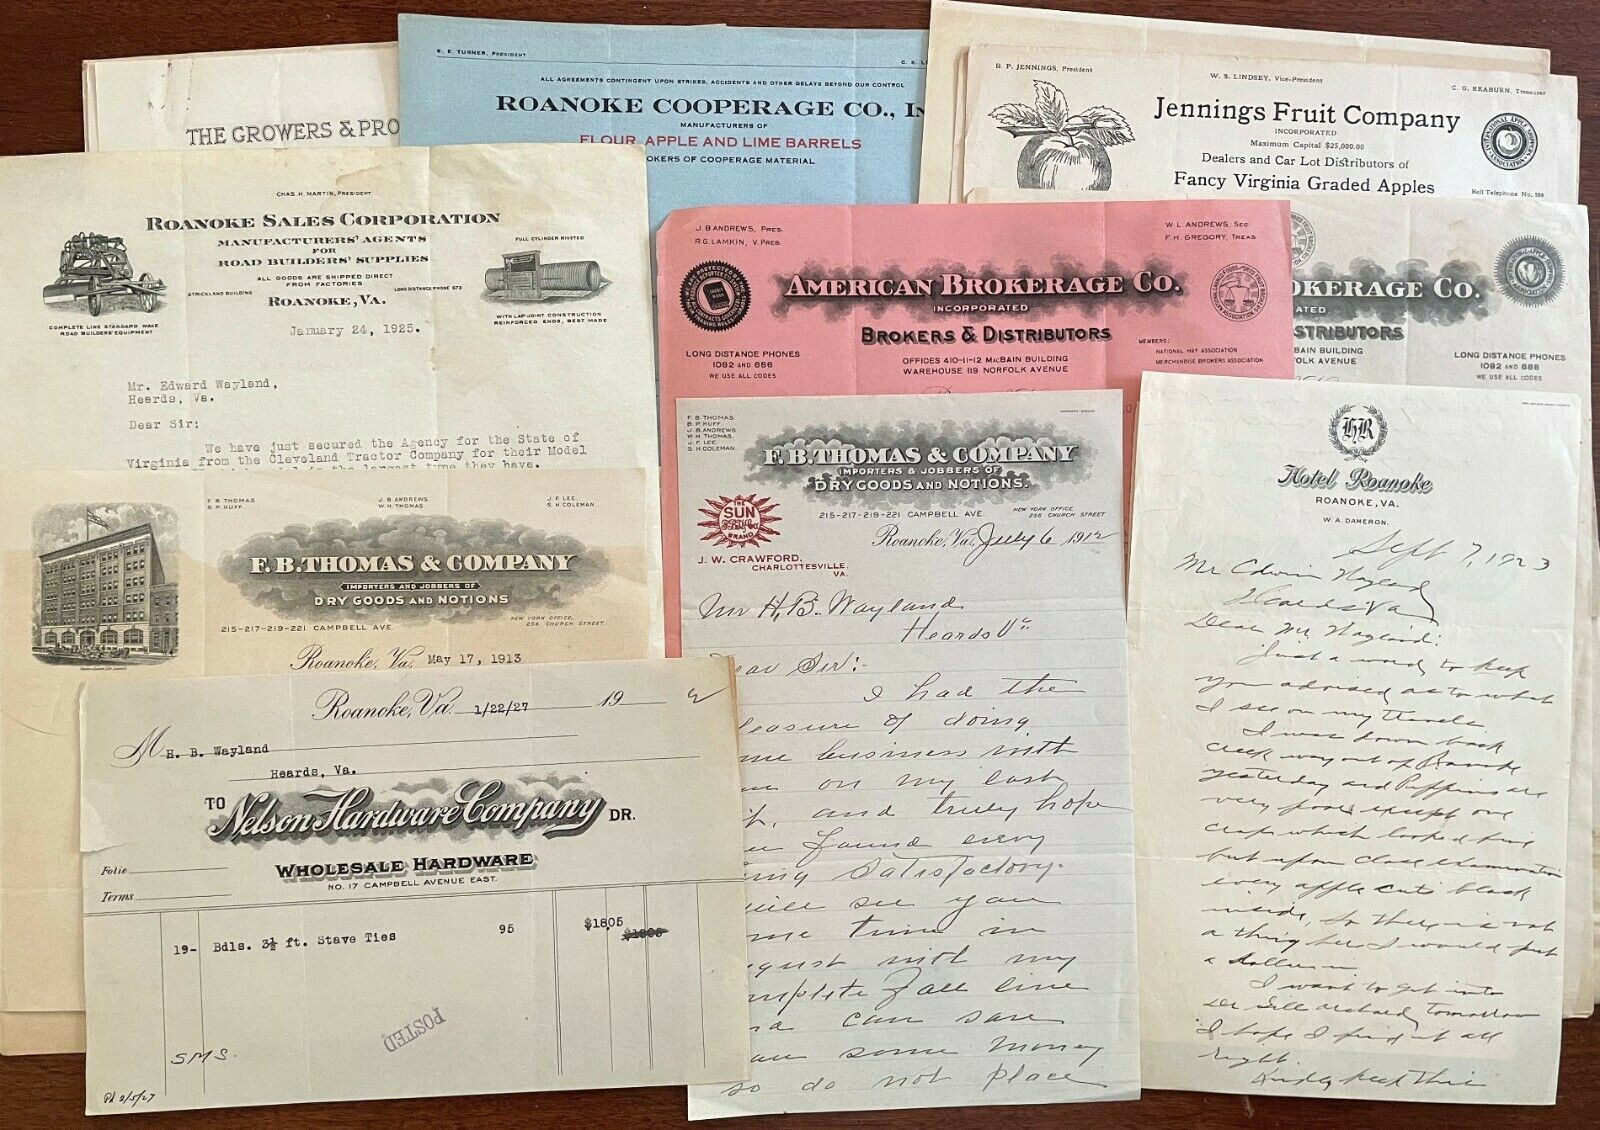 THE GROWERS & PRO
G. E. TURNER, PRESIDENT
ALL AGREEMENTS CONTINGENT UPON STRIKES, ACCIDENTS AND OTHER DELAYS BEYOND OUR CONTROL
ROANOKE COOPERAGE CO., IN
MANUFACTURERS OF
FLOUR, APPLE AND LIME BARRELS
OKERS OF COOPERAGE MATERIAL
B. P. JENNINGS, President
W. S. LINDSEY, Vice-President
C. G. REABURN, Treasurer
Jennings Fruit Company
INCORPORATED
Maximum Capital $25,000.00
Dealers and Car Lot Distributors of
Fancy Virginia Graded Apples
Bell Telephone No. 558
INTERNATIONAL APPLE SHIPPERS ASSOCIATION
CHAS. H. MARTIN, PRESIDENT
ROANOKE SALES CORPORATION
MANUFACTURERS' AGENTS
FOR
ROAD BUILDERS' SUPPLIES
ALL GOODS ARE SHIPPED DIRECT
FROM FACTORIES
STRICKLAND BUILDING
LONG DISTANCE PHONE 673
ROANOKE, VA.
COMPLETE LINE STANDARD MAKE
ROAD BUILDERS' EQUIPMENT
FULL CYLINDER RIVETED
WITH LAP JOINT CONSTRUCTION
REINFORCED ENDS, BEST MADE
January 24, 1925.
Mr. Edward Wayland,
Heards, Va.
Dear Sir:
We have just secured the Agency for the State of
Virginia from the Cleveland Tractor Company for their Model
is the largest type they have.
J. B. ANDREWS, PRES.
R. G. LAMKIN, V. PRES.
W. L. ANDREWS, SEC.
F. H. GREGORY, TREAS.
AMERICAN BROKERAGE CO.
INCORPORATED
BROKERS & DISTRIBUTORS
LONG DISTANCE PHONES
1092 AND 686
WE USE ALL CODES
OFFICES 410-11-12 McBAIN BUILDING
WAREHOUSE 119 NORFOLK AVENUE
MEMBERS:
NATIONAL HAY ASSOCIATION
MERCHANDISE BROKERS ASSOCIATION
OKERAGE CO.
ATED
STRIBUTORS
BAIN BUILDING
FOLK AVENUE
LONG DISTANCE PHONES
1092 AND 686
WE USE ALL CODES
F. B. THOMAS
B. P. HUFF
J. B. ANDREWS
W. H. THOMAS
J. F. LEE
S. H. COLEMAN
F. B. THOMAS & COMPANY
IMPORTERS AND JOBBERS OF
DRY GOODS AND NOTIONS
215-217-219-221 CAMPBELL AVE.
NEW YORK OFFICE,
256 CHURCH STREET
Roanoke, Va. May 17, 1913
F. B. THOMAS
B. P. HUFF
J. B. ANDREWS
W. H. THOMAS
J. F. LEE
S. H. COLEMAN
F. B. THOMAS & COMPANY
IMPORTERS & JOBBERS OF
DRY GOODS AND NOTIONS.
215-217-219-221 CAMPBELL AVE.
NEW YORK OFFICE
256 CHURCH STREET
THE
SUN
BRAND
J. W. CRAWFORD,
CHARLOTTESVILLE,
VA.
Roanoke, Va. July 6 1912
Mr H. B. Wayland
Heards Va
Dear Sir:-
I had the
leasure of doing
me business with
on my last
and truly hope
found every
ing satisfactory.
will see you
me time in
gust with my
mplete fall line
and can save
you some money
so do not place
HR
Hotel Roanoke
ROANOKE, VA.
W. A. DAMERON.
Sept 7, 1923
Mr Edwin Wayland
Heards Va
Dear Mr Wayland:
Just a word to keep
you advised as to what
I see on my travels
I was down back
creek way out of Roanoke
yesterday and Pippins are
very poor except one
crop which looked fine
but upon close examination
every apple cuts black
inside, so there is not
a thing here I would put
a dollar in
I want to get into
Dr Sill orchard tomorrow
I hope I find it all
right.
Kindly keep this
Roanoke, Va. 1/22/27 19
M H. B. Wayland
Heards, Va.
TO Nelson Hardware Company DR.
WHOLESALE HARDWARE
NO. 17 CAMPBELL AVENUE EAST.
Folio
Terms
19- Bdls. 3½ ft. Stave Ties 95 $1805
POSTED
SMS.
Pd 2/5/27